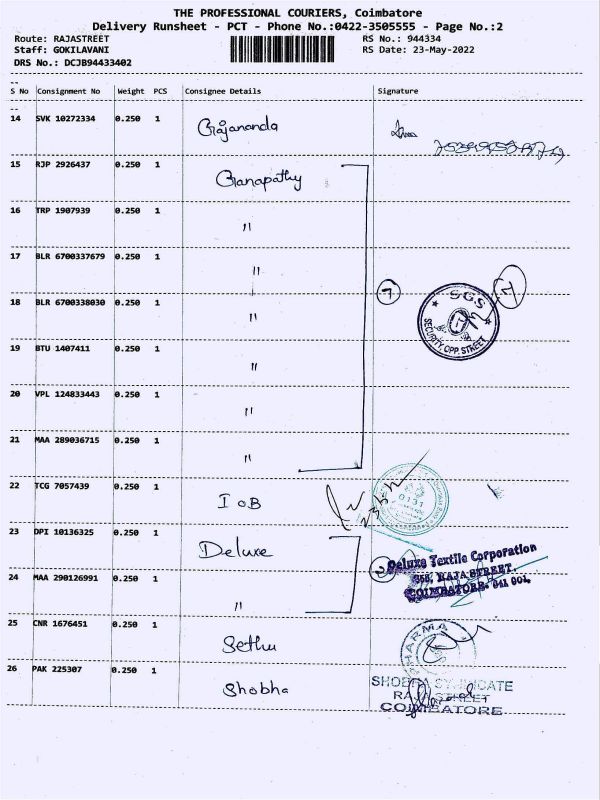 THE PROFESSIONAL COURIERS, Coimbatore
Delivery Runsheet - PCT - Phone No.:0422-3505555 - Page No.:2
Route: RAJASTREET RS No.: 944334
Staff: GOKILAVANI RS Date: 23-May-2022
DRS No.: DCJB94433402
S No Consignment No Weight PCS Consignee Details Signature
14 SVK 10272334 0.250 1 Grajananda
15 RJP 2926437 0.250 1 Ganapathy
16 TRP 1907939 0.250 1 "
17 BLR 6700337679 0.250 1 "
7
18 BLR 6700338030 0.250 1 "
SGS
SECURITY OPP. STREET
19 BTU 1407411 0.250 1 "
20 VPL 124833443 0.250 1 "
21 MAA 289036715 0.250 1 "
22 TCG 7057439 0.250 1 IOB
0131
23 DPI 10136325 0.250 1 Deluxe
Deluxe Textile Corporation
358, RAJA STREET,
COIMBATORE. 641 001.
24 MAA 290126991 0.250 1 "
25 CNR 1676451 0.250 1 Sethu
PHARMA
26 PAK 225307 0.250 1 Shobha
SHOBHA SYNDICATE
RAJA STREET
COIMBATORE